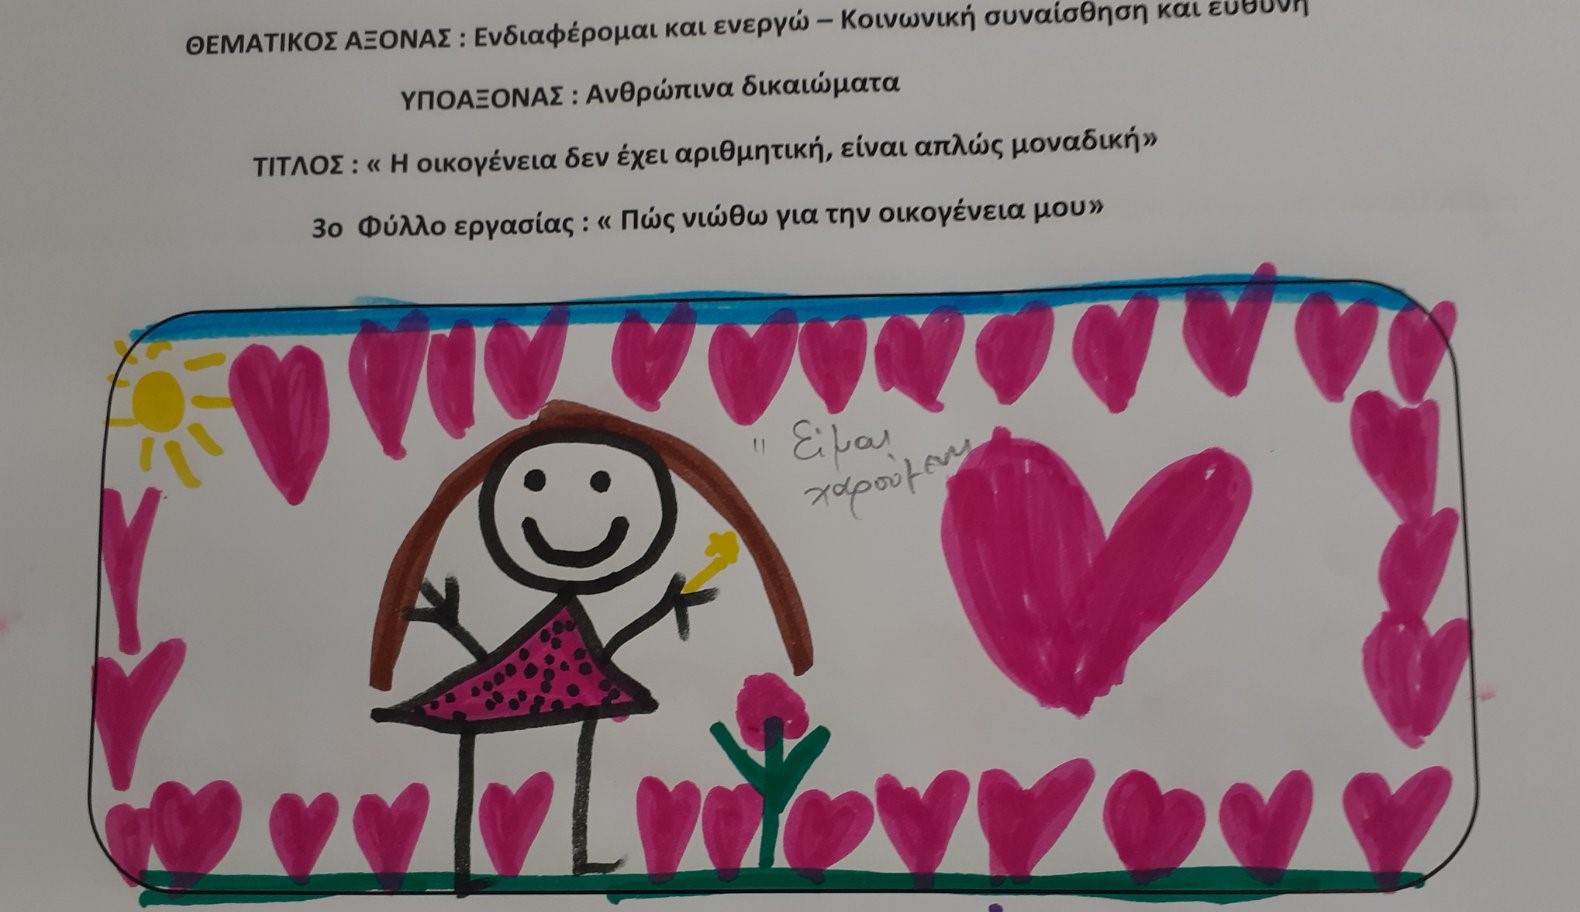 ΘΕΜΑΤΙΚΟΣ ΑΞΟΝΑΣ : Ενδιαφέρομαι και ενεργώ – Κοινωνική συναίσθηση και ευθύνη
ΥΠΟΑΞΟΝΑΣ : Ανθρώπινα δικαιώματα
ΤΙΤΛΟΣ : « Η οικογένεια δεν έχει αριθμητική, είναι απλώς μοναδική»
3ο Φύλλο εργασίας : « Πώς νιώθω για την οικογένεια μου»
" Είμαι
χαρούμενη